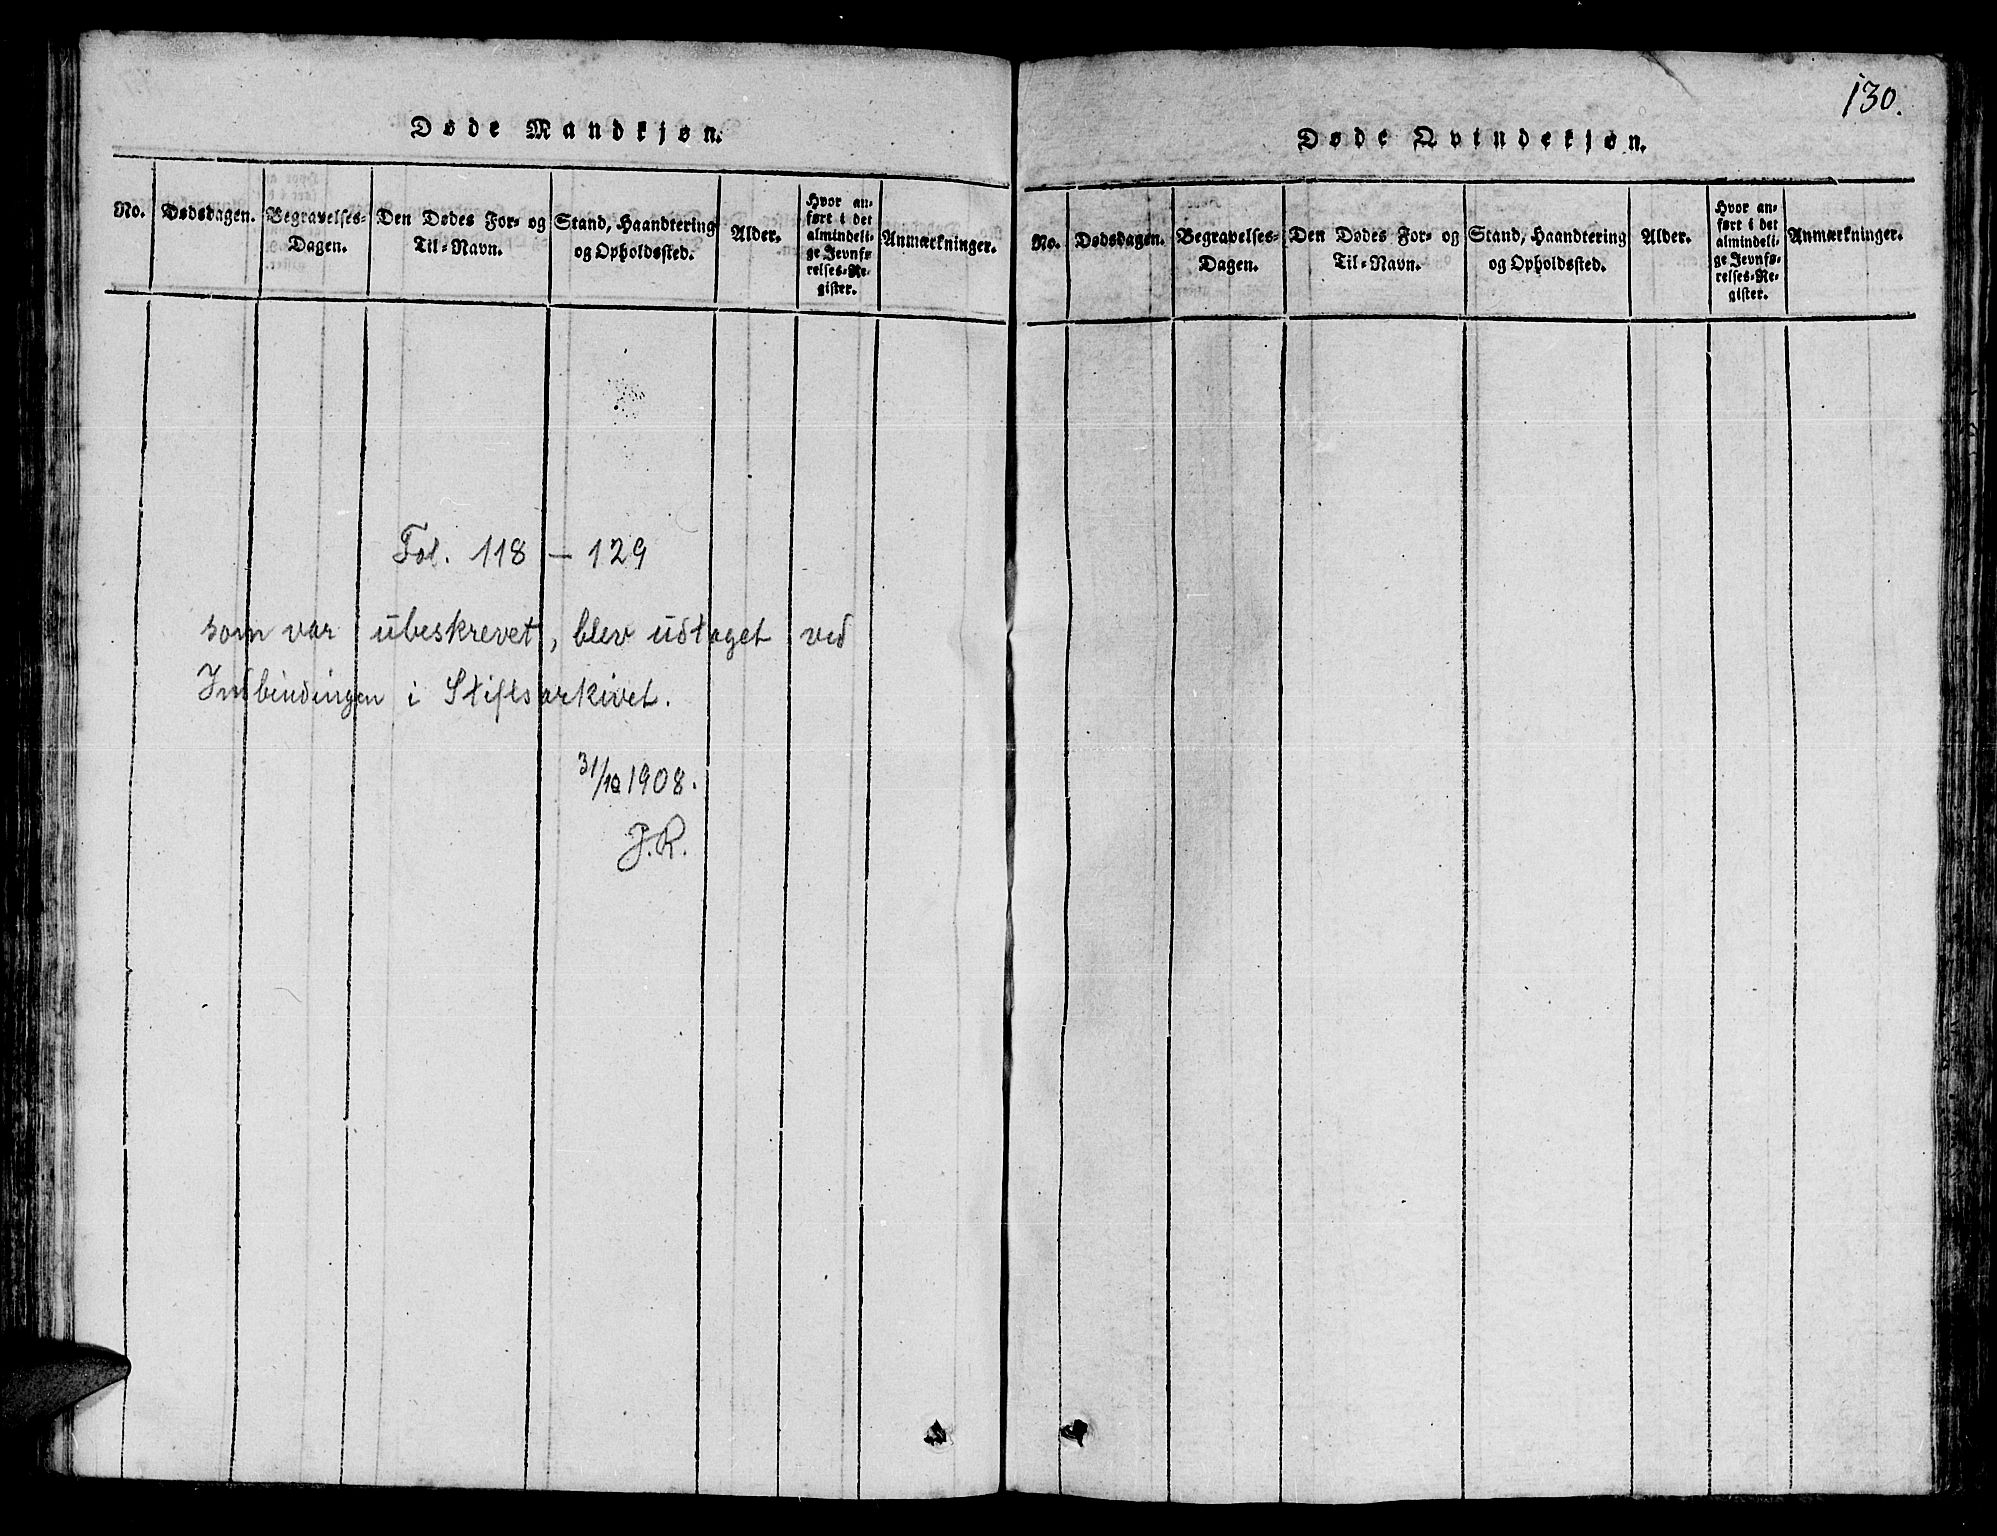 130.
Døde Mandkjøn.
No.
Dødsdagen.
Begravelses-
Dagen.
Den Dødes For- og
Til-Navn.
Stand, Haandtering
og Opholdssted.
Alder.
Hvor an-
ført i det
almindeli-
ge Jevnfø-
relses-Re-
gister.
Anmærkninger.
Fol. 118 – 129
som var ubeskrevet, blev udtaget ved
Indbindingen i Stiftsarkivet.
31/10 1908.
J.R.
Døde Qvindekjøn.
No.
Dødsdagen.
Begravelses-
Dagen.
Den Dødes For- og
Til-Navn.
Stand, Haandtering
og Opholdssted.
Alder.
Hvor an-
ført i det
almindeli-
ge Jevnfø-
relses-Re-
gister.
Anmærkninger.